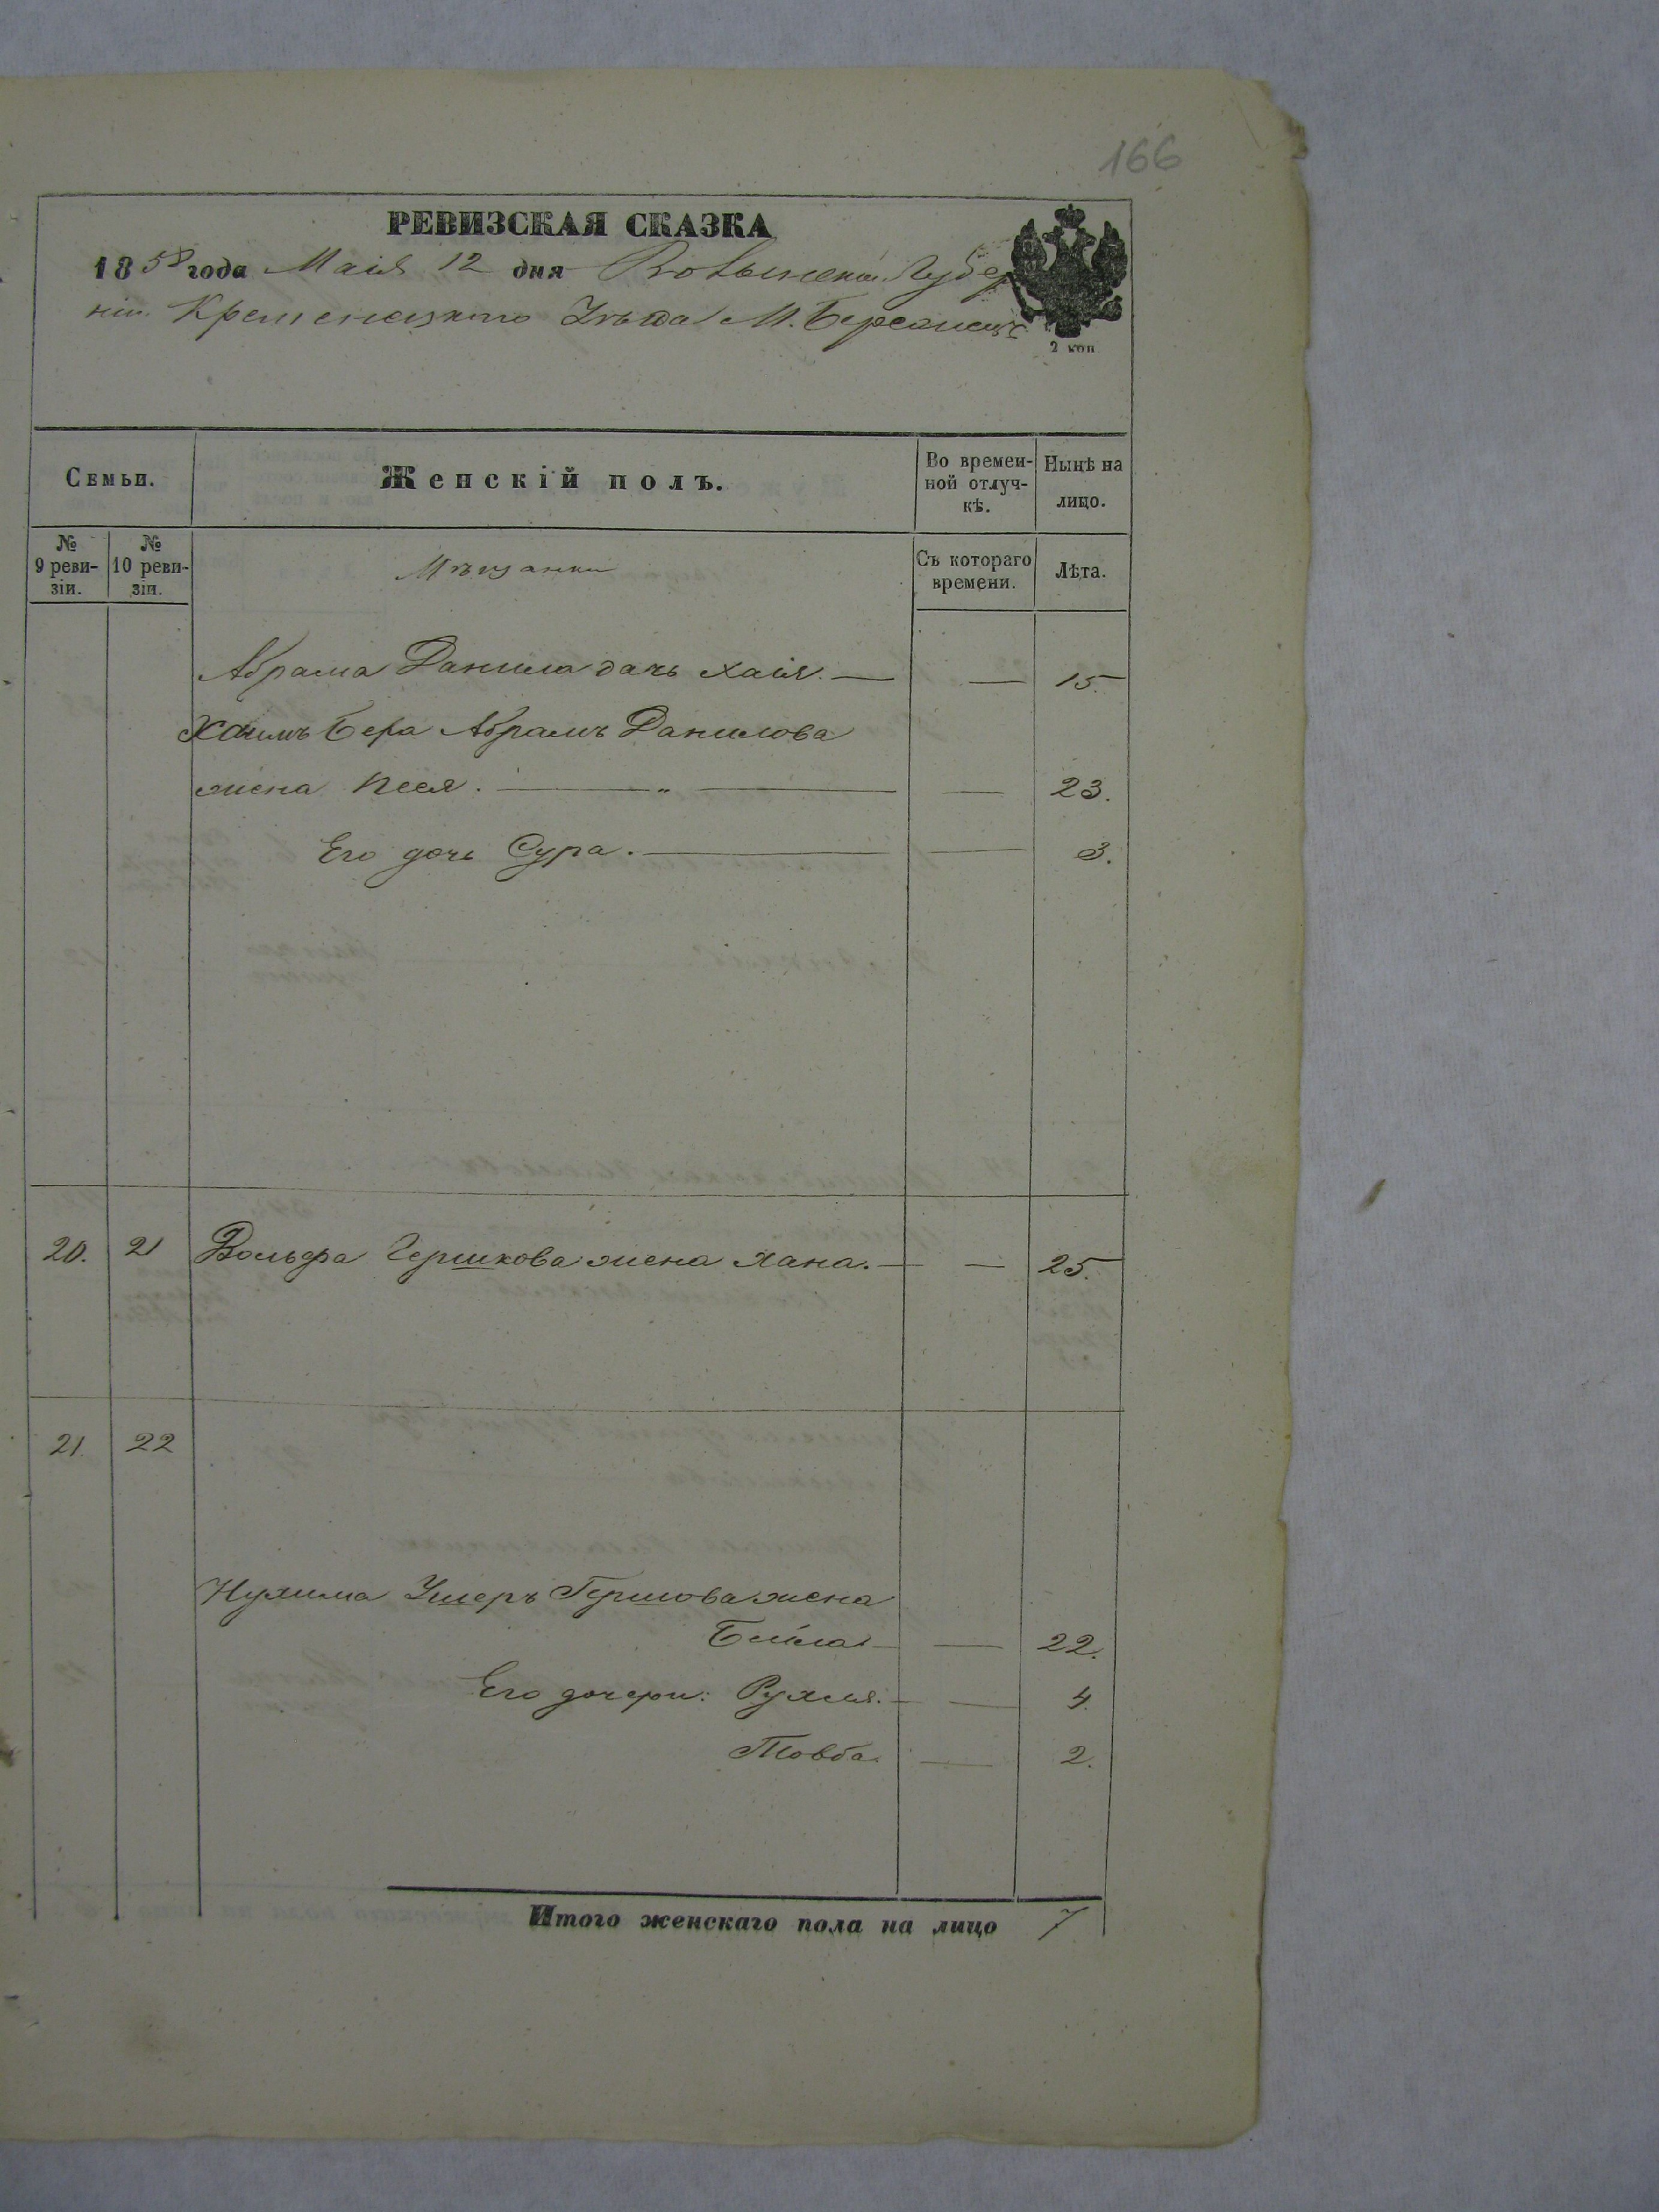 166
РЕВИЗСКАЯ СКАЗКА
1858 года Маія 12 дня Волынской Губер
ніи Кременецкаго Уѣзда М. Бережець
2 коп
Семьи.
Женскій полъ.
Во времен-
ной отлуч-
кѣ.
Нынѣ на
лицо.
№
9 реви-
зіи.
№
10 реви-
зіи.
Мѣщанки
Съ котораго
времени.
Лѣта.
Абрама Данила дочь Хаія. — — 15.
Хаимъ Бера Абрамъ Данилова
жена Песя. — „ — — 23.
Его дочь Сура. — — 3.
20. 21 Вольфа Гершкова жена Хана. — — 25.
21. 22
Нухима Ушеръ Гершова жена
Бейла — — 22.
Его дочери: Рухля. — — 4.
Товба. — 2.
Итого женскаго пола на лицо 7